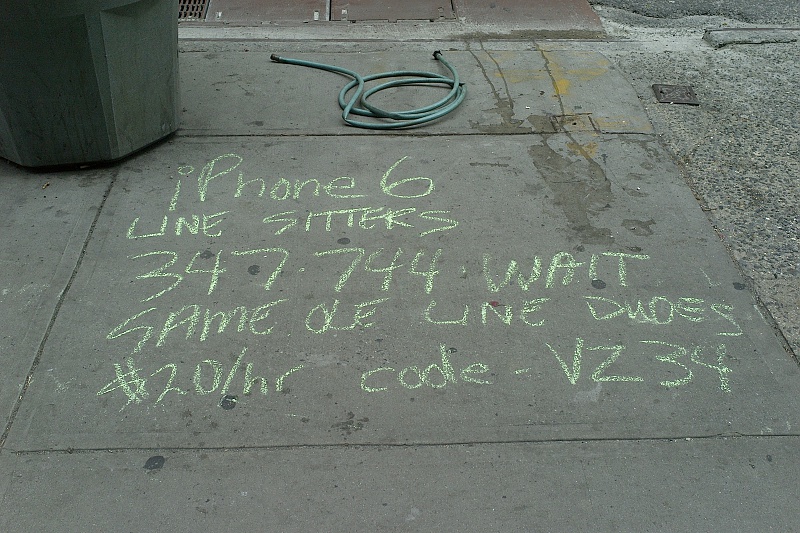 iPhone 6
LINE SITTERS
347.744 WAIT
SAME OLE LINE DUDES
$20/hr code - VZ34